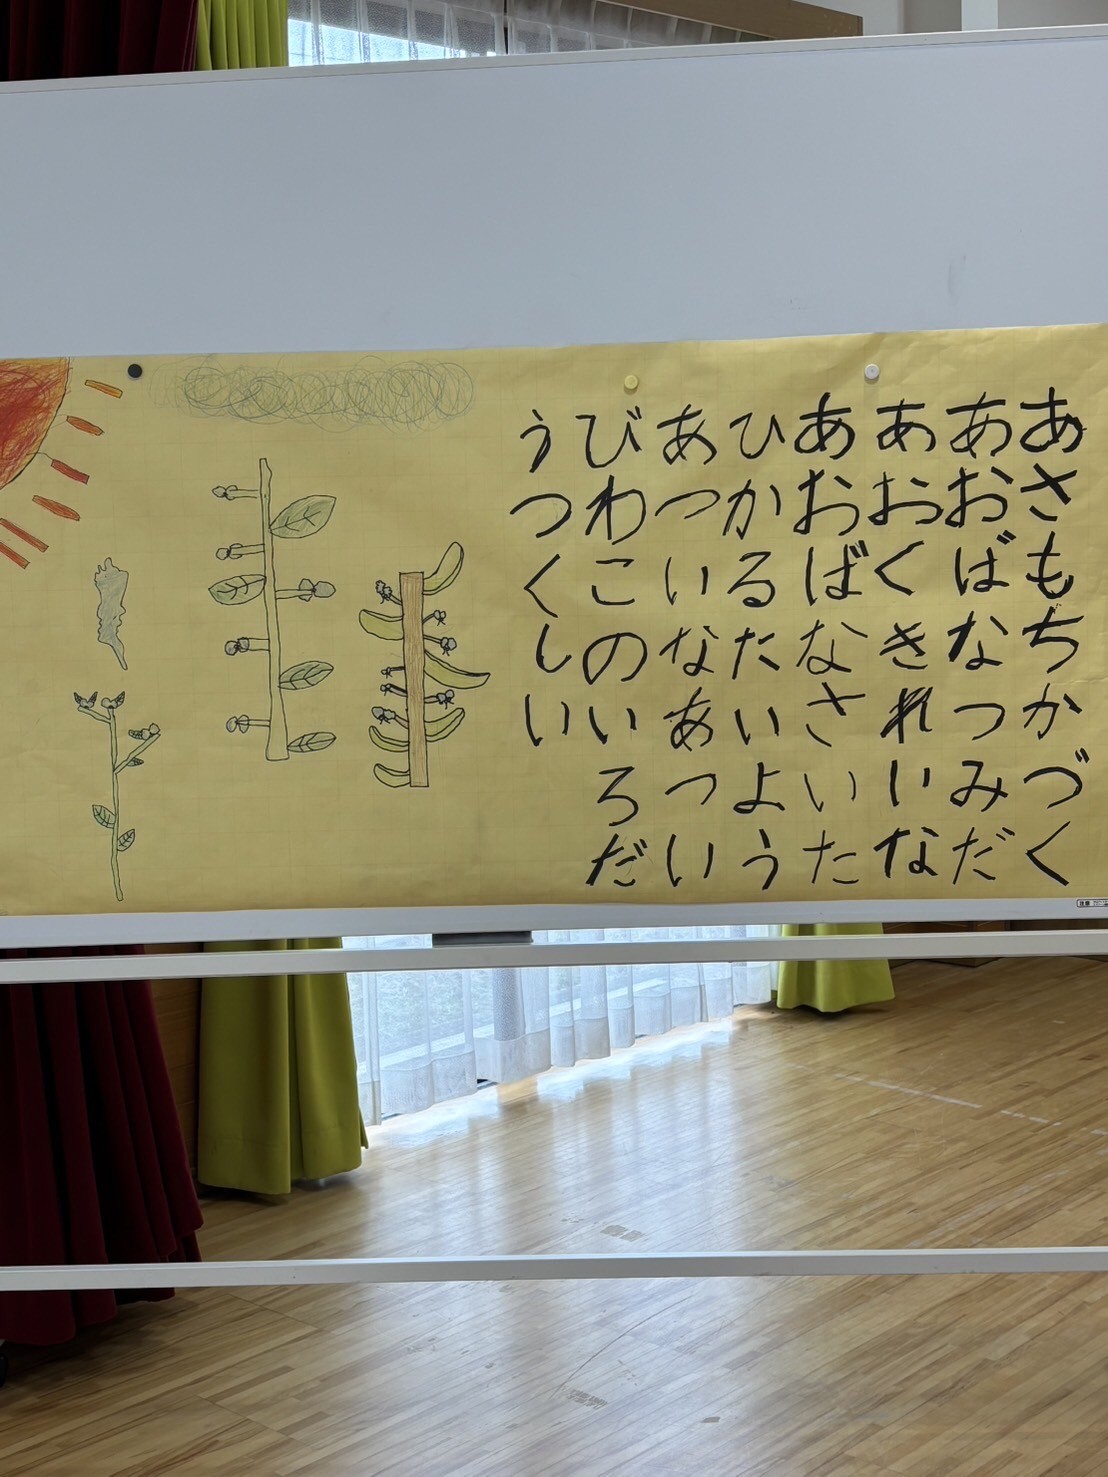 あさもちかづく
ああおばなつみだ
ああおくきれいな
ああおばなさいた
ひかるたいよう
あつい なああつい
びわこのいろだ
うつくしい